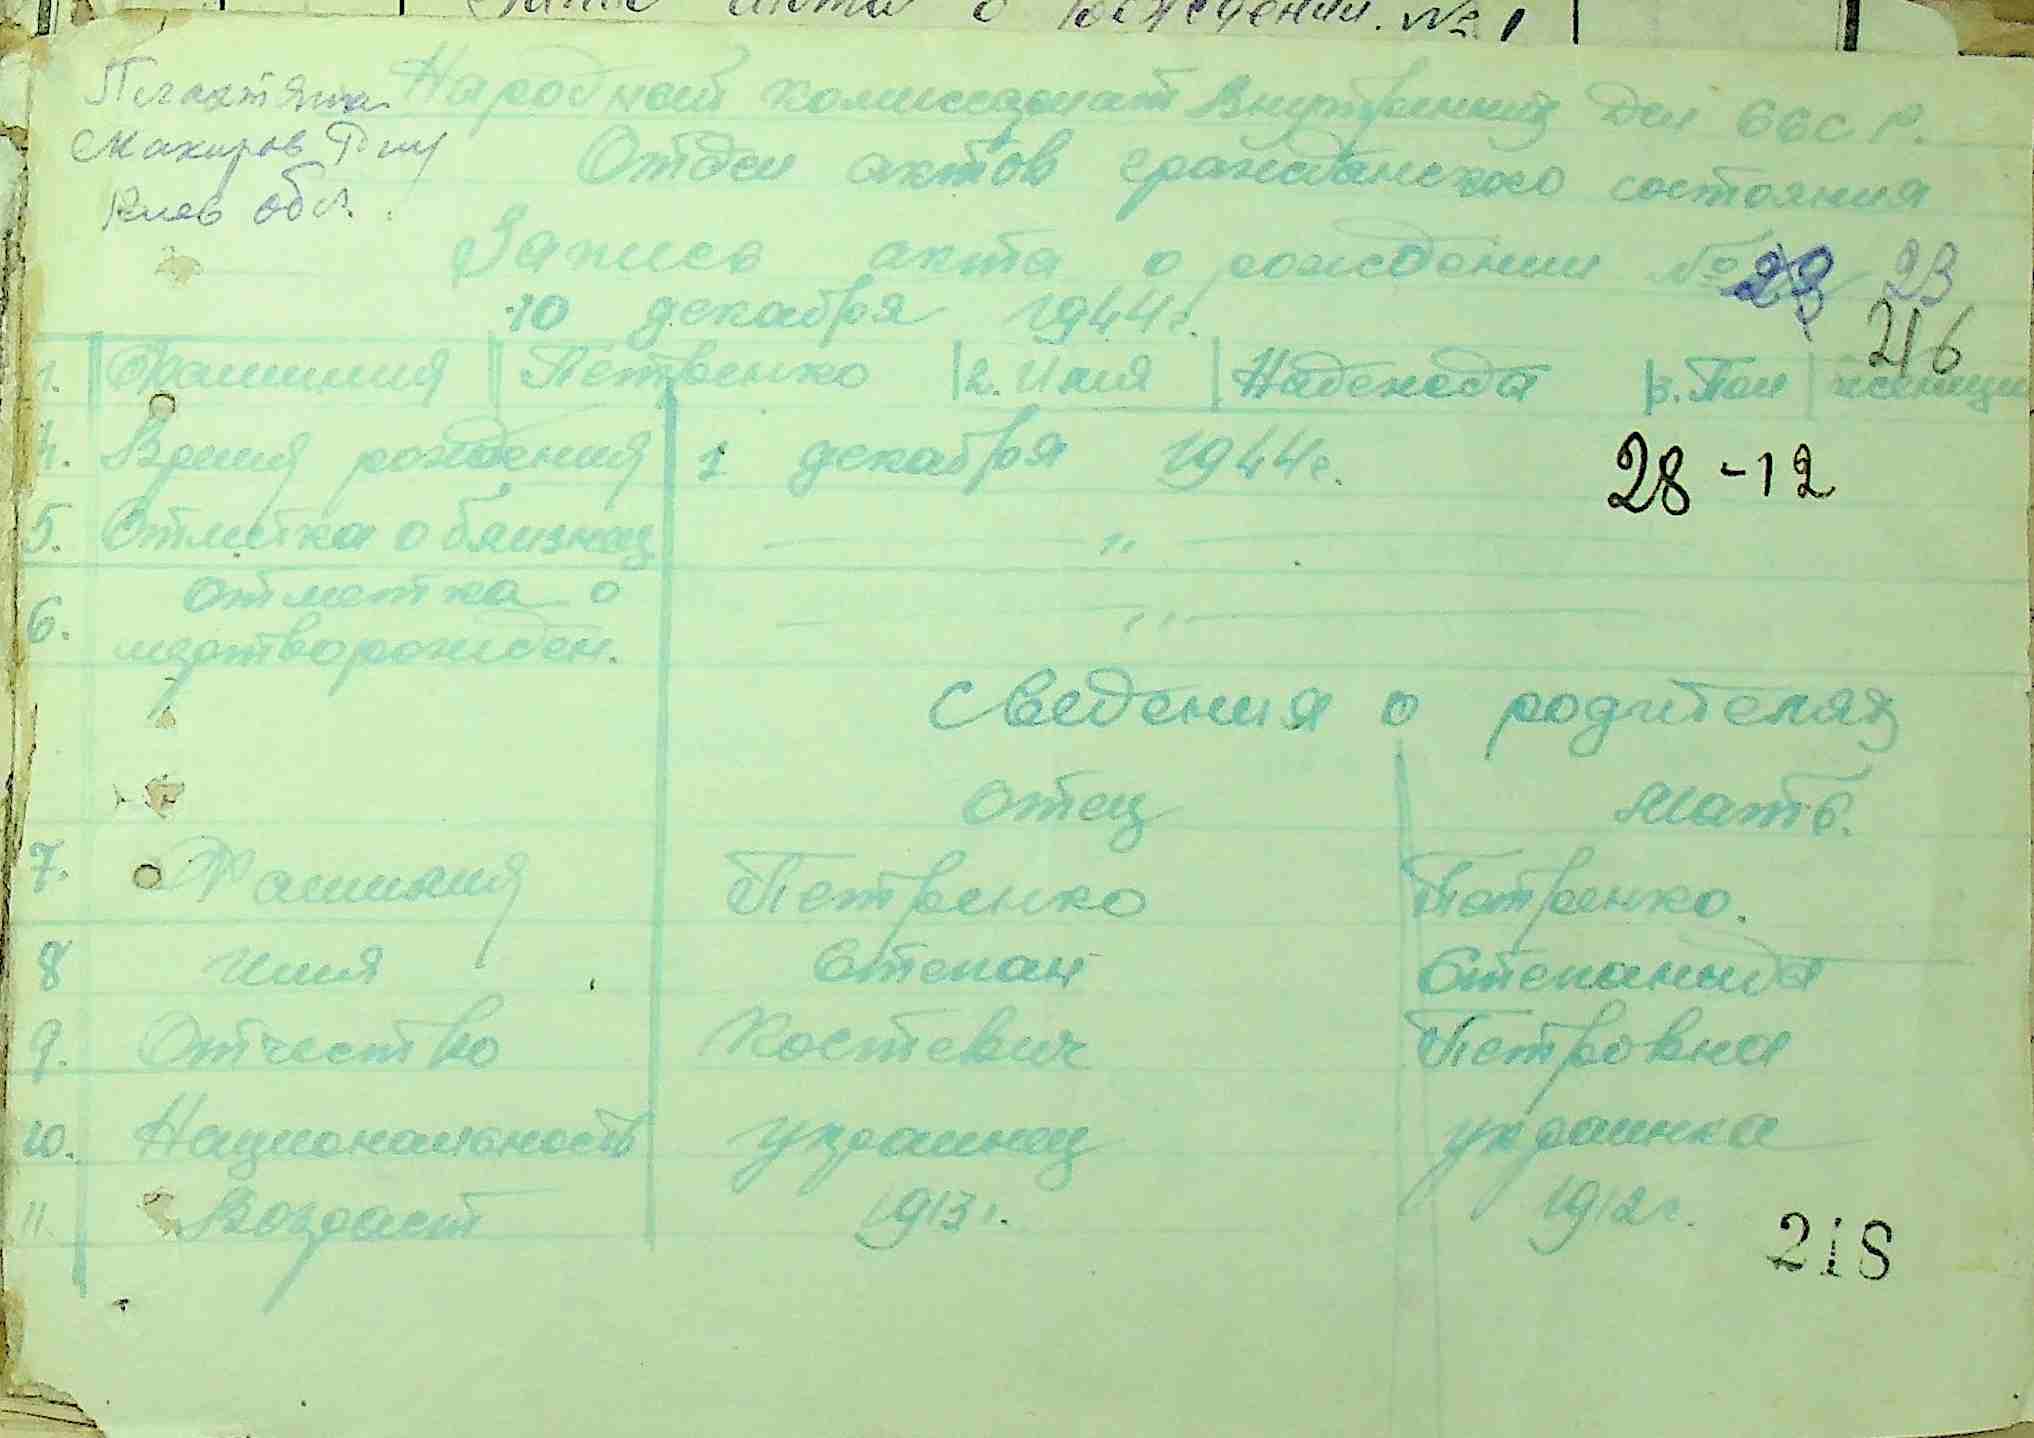 акта о рождении. № 1
Макаров
Киев обл.
Народный комиссариат Внутренних Дел СССР.
Отдел актов гражданского состояния
Запись акта о рождении № 23
10 декабря 1944г.
216
1. Фамилия Петренко 2. Имя Надежда 3. Пол женщи
4. Время рождения 1 декабря 1944г.
28-12
5. Отметка о близнец
6. Отметка о
мертворожден.
Сведения о родителях
Отец Мать.
7. Фамилия Петренко Петренко.
8 Имя Степан Степанида
9. Отчество Костевич Петровна
10. Национальность украинец украинка
11. Возраст 1913г. 1912г.
218